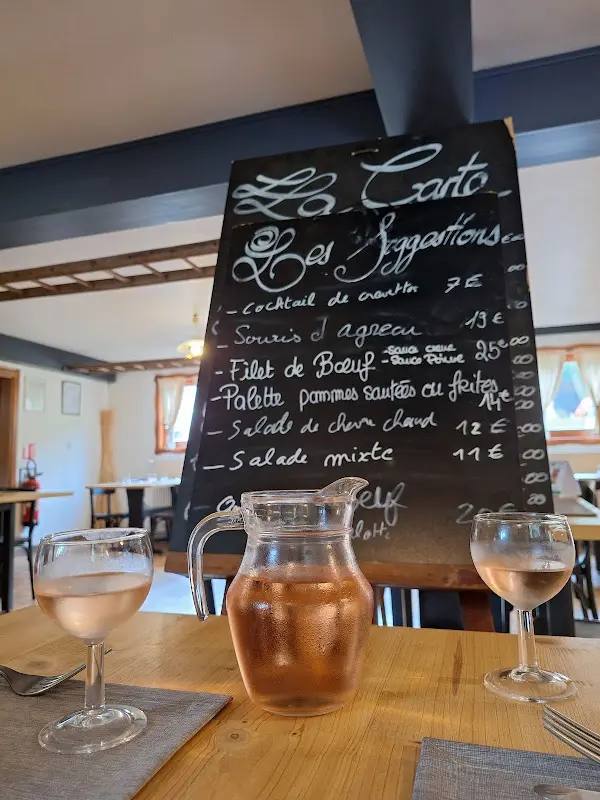 La Carte
Les Suggestions
- Cocktail de crevette 7€
- Souris d'agneau 19€
- Filet de Bœuf - Sauce crème - Sauce Poivre 25€
- Palette pommes sautées ou frites 14€
- Salade de chèvre chaud 12€
- Salade mixte 11€
Bœuf 20